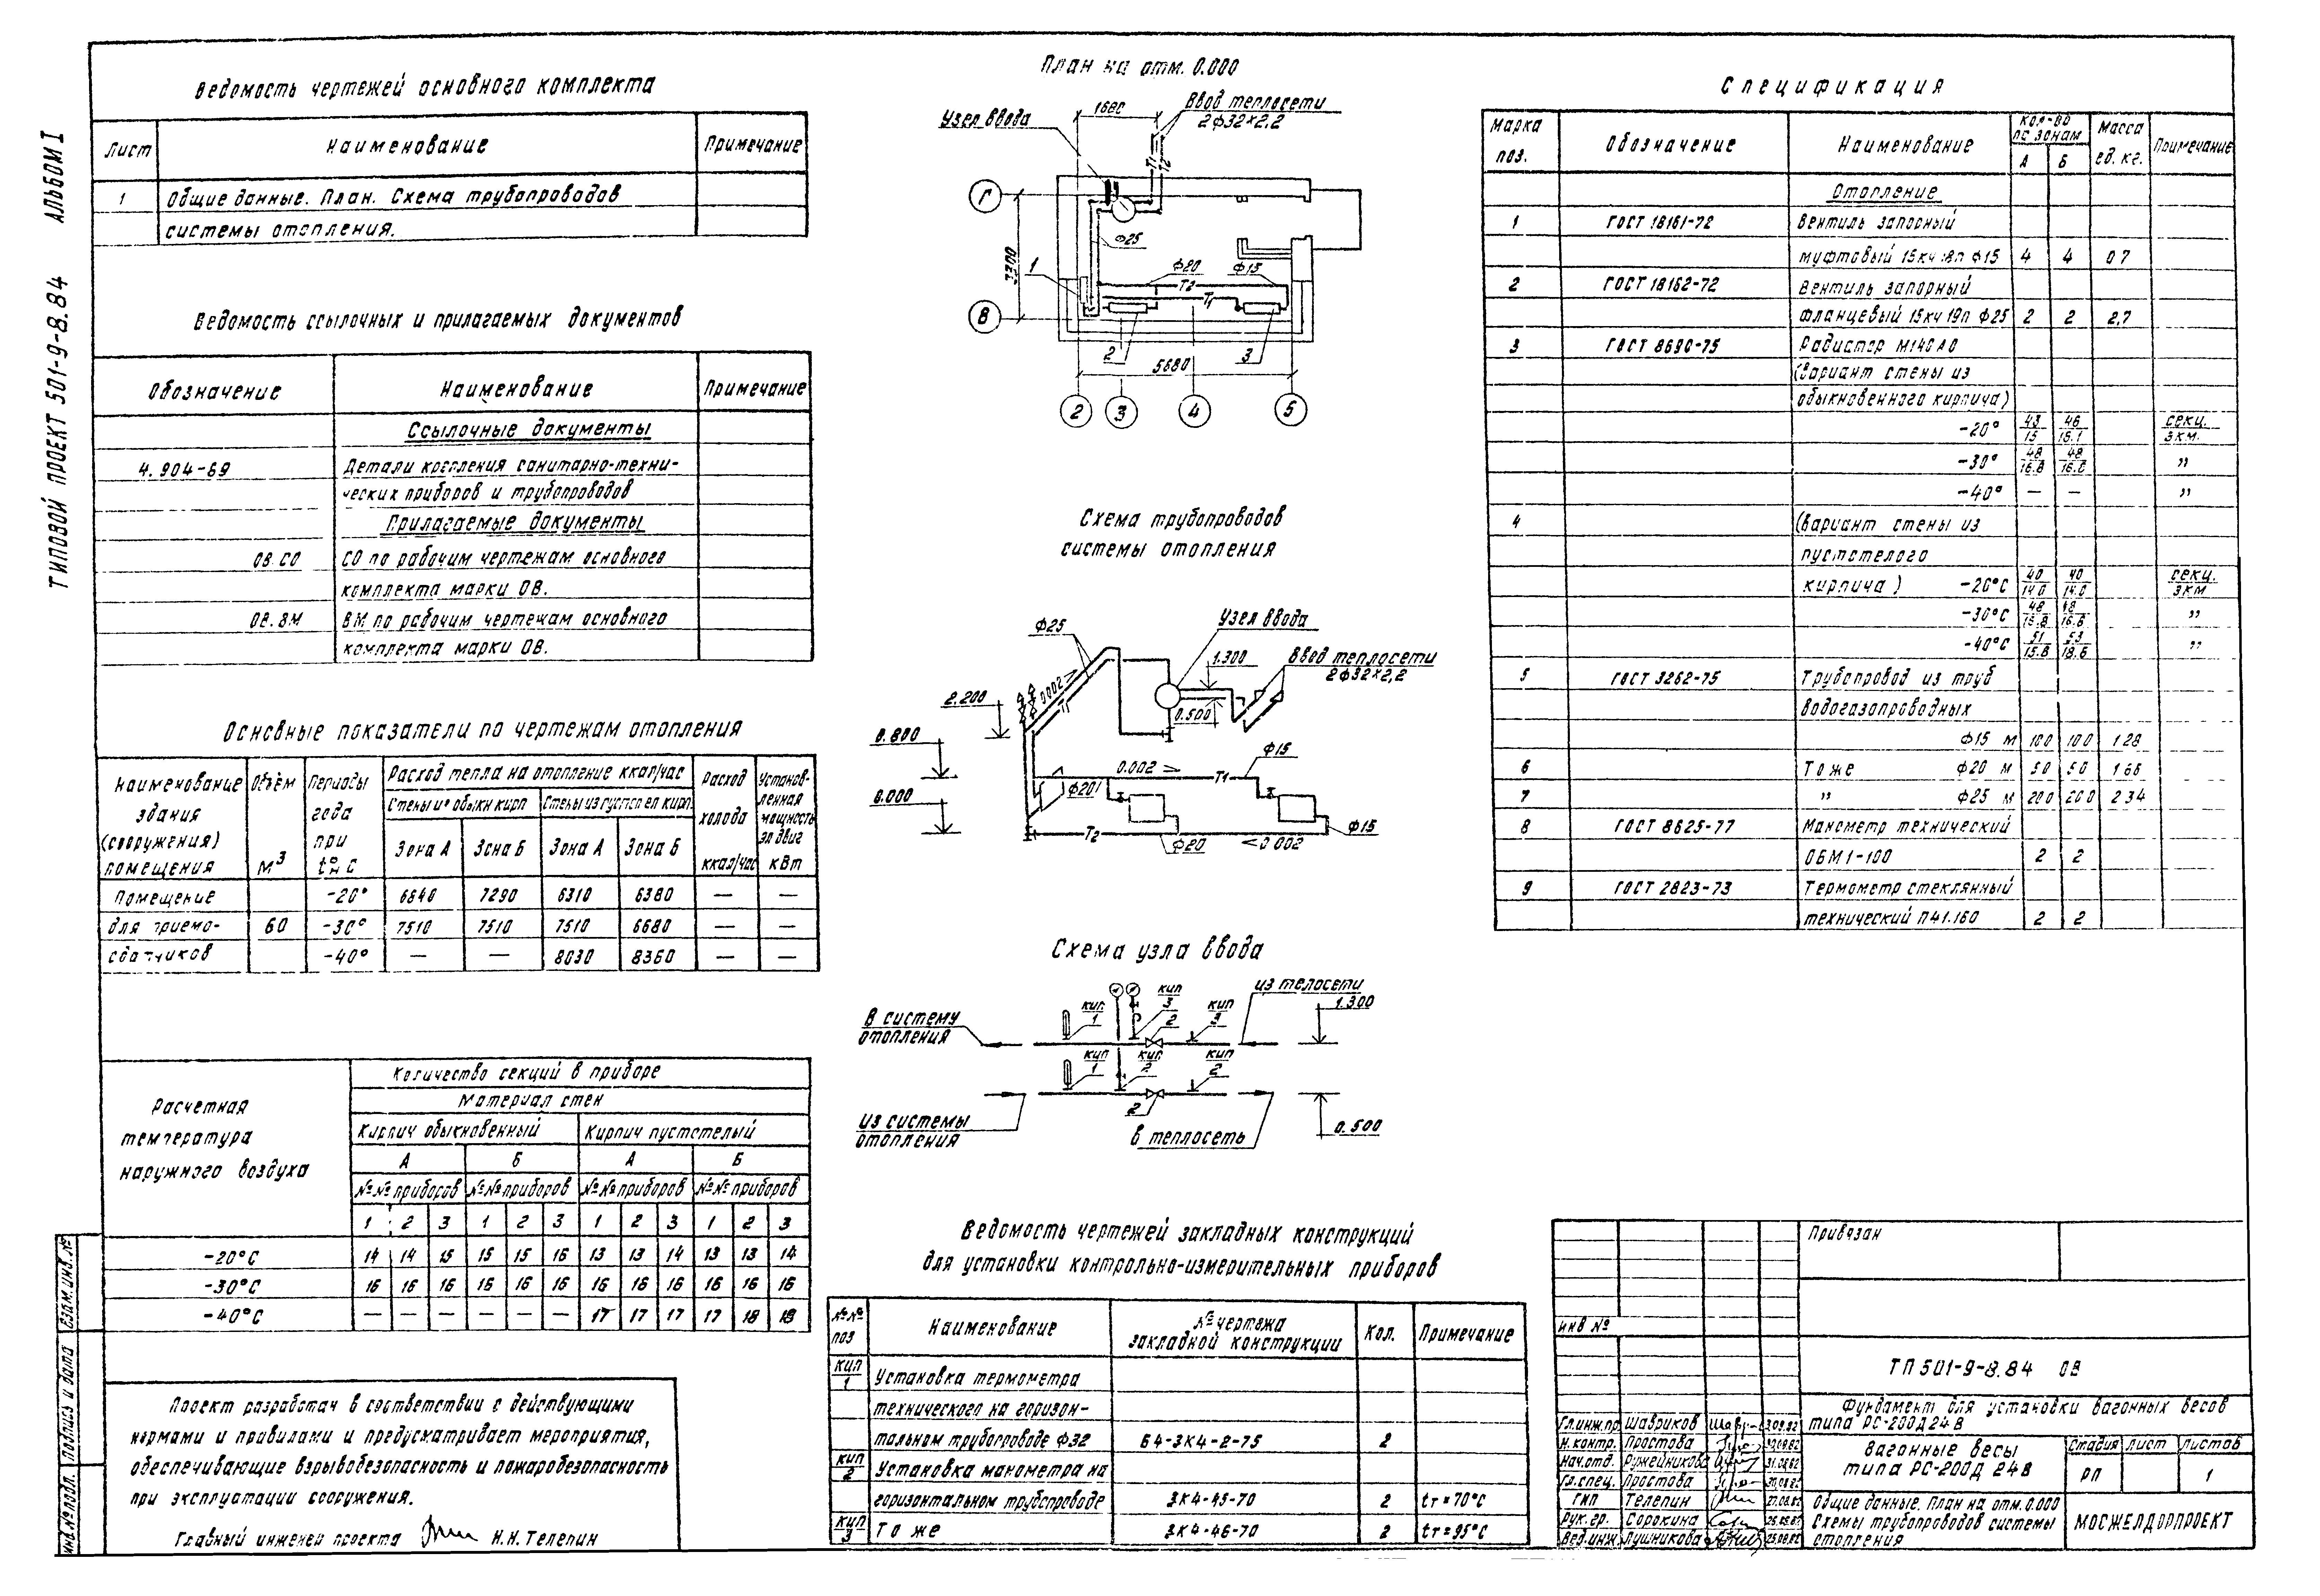 ТИПОВОЙ ПРОЕКТ 501-9-8.84 АЛЬБОМ I
Ведомость чертежей основного комплекта
Лист Наименование Примечание
1 Общие данные. План. Схема трубопроводов
системы отопления.
Ведомость ссылочных и прилагаемых документов
Обозначение Наименование Примечание
Ссылочные документы
4.904-69 Детали крепления санитарно-техни-
ческих приборов и трубопроводов
Прилагаемые документы
ОВ.СО СО по рабочим чертежам основного
комплекта марки ОВ.
ОВ.ВМ ВМ по рабочим чертежам основного
комплекта марки ОВ.
Основные показатели по чертежам отопления
Наименование здания (сооружения) помещения
Объём м³
Периоды года при tн°С
Расход тепла на отопление ккал/час
Стены из обыкн кирп. Стены из пустотел кирп.
Зона А Зона Б Зона А Зона Б
Расход холода ккал/час
Установ-ленная мощность эл двиг кВт
Помещение -20° 6640 7290 6310 6380 — —
для приемо- 60 -30° 7510 7510 7510 6680 — —
сдатчиков -40° — — 8030 8360 — —
Расчетная
температура
наружного воздуха
Количество секций в приборе
Материал стен
Кирпич обыкновенный Кирпич пустотелый
А Б А Б
№№ приборов №№ приборов №№ приборов №№ приборов
1 2 3 1 2 3 1 2 3 1 2 3
-20°С 14 14 15 15 15 16 13 13 14 13 13 14
-30°С 16 16 16 16 16 16 16 16 16 16 16 16
-40°С — — — — — — 17 17 17 17 18 18
Проект разработан в соответствии с действующими
нормами и правилами и предусматривает мероприятия,
обеспечивающие взрывобезопасность и пожаробезопасность
при эксплуатации сооружения.
Главный инженер проекта Н.Н.Телепин
Взам.инв.№
Подпись и дата
Инв.№ подл.
План на отм. 0.000
1680
Ввод теплосети
2ф32×2,2
Узел ввода
Т1 Т2
Г
ф25
3300
1
ф20 ф15
Т2
Т1
В
2 3
5680
2 3 4 5
Схема трубопроводов
системы отопления
ф25
Узел ввода
1.300
Ввод теплосети
2ф32×2,2
0.002
2.200
0.500
0.800
0.002
Т1
ф15
ф20
0.000
Т2
ф20
0.002
ф15
Схема узла ввода
В систему
отопления
кип 1
кип 3
2
кип 3
из телосети
1.300
кип 1
кип 2
кип 2
2
Из системы
отопления
в теплосеть
0.500
Ведомость чертежей закладных конструкций
для установки контрольно-измерительных приборов
№№ поз Наименование № чертежа закладной конструкции Кол. Примечание
кип 1 Установка термометра
технического на горизон-
тальном трубопроводе ф32 64-ЗК4-2-75 2
кип 2 Установка манометра на
горизонтальном трубопроводе ЗК4-45-70 2 tт=70°С
кип 3 То же ЗК4-46-70 2 tт=95°С
Спецификация
Марка поз. Обозначение Наименование Кол-во по зонам А Б Масса ед. кг. Примечание
Отопление
1 ГОСТ 18161-72 Вентиль запорный
муфтовый 15кч 18п ф15 4 4 0,7
2 ГОСТ 18162-72 Вентиль запорный
фланцевый 15кч 19п ф25 2 2 2,7
3 ГОСТ 8690-75 Радиатор М140АО
(вариант стены из
обыкновенного кирпича)
-20° 43/15 46/16.1 секц./экм.
-30° 48/16.8 48/16.8 "
-40° — — "
4 (вариант стены из
пустотелого
кирпича) -20°С 40/14.0 40/14.0 секц./экм
-30°С 48/16.8 48/16.8 "
-40°С 51 53/18.6 "
5 ГОСТ 3262-75 Трубопровод из труб
водогазопроводных
ф15 м 10.0 10.0 1.28
6 То же ф20 м 5.0 5.0 1.66
7 " ф25 м 20.0 20.0 2.34
8 ГОСТ 8625-77 Манометр технический
ОБМ1-100 2 2
9 ГОСТ 2823-73 Термометр стеклянный
технический П41.160 2 2
Привязан
инв №
ТП 501-9-8.84 ОВ
Фундамент для установки вагонных весов
типа РС-200Д24В
Гл.инж.пр. Шавриков
Н.контр. Простова
Нач.отд. Ружейникова
Гл.спец. Простова
ГИП Телепин
Рук.гр. Сорокина
Вед.инж. Лушникова
Вагонные весы
типа РС-200Д 24В
Стадия Лист Листов
РП 1
Общие данные. План на отм. 0.000
Схемы трубопроводов системы
отопления
МОСЖЕЛДОРПРОЕКТ